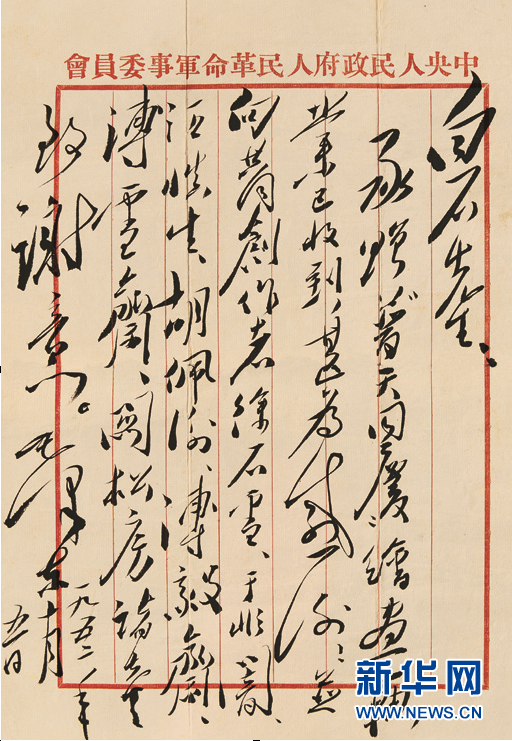 中央人民政府人民革命軍事委員會
白石先生：
承贈普天同慶繪畫一軸，
業已收到，甚為感謝！並
向共同創作者徐石雪、于非闇、
汪慎生、胡佩衡、溥毅齋、
溥雪齋、關松房諸先生
致謝意。毛澤東
一九五二年
十月
五日
新华网
WWW.NEWS.CN